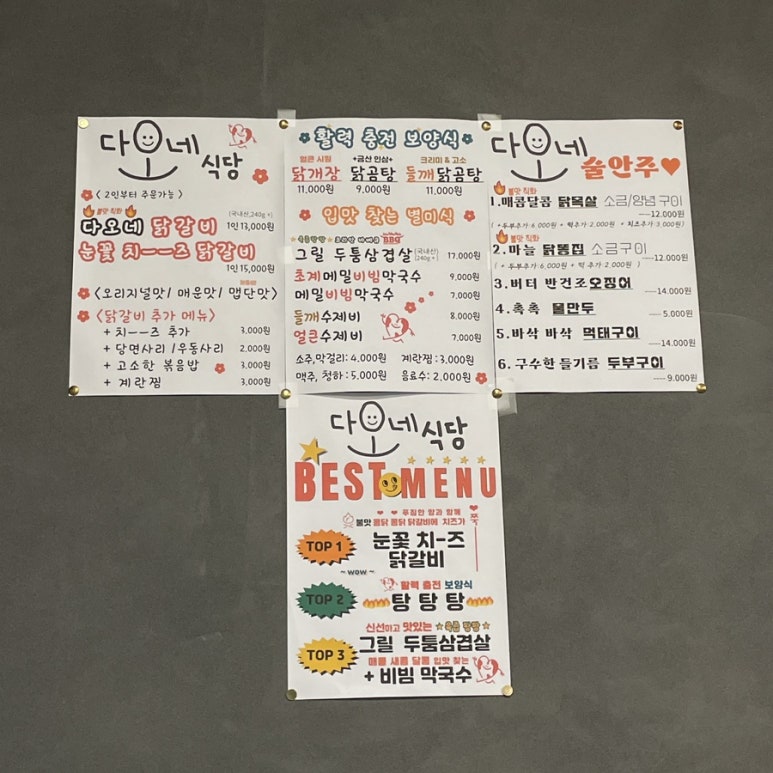 다오네 식당
< 2인부터 주문가능 >
불맛 직화
다오네 닭갈비 (국내산,240g+) 1인 13,000원
눈꽃 치——즈 닭갈비
1인 15,000원
<오리지널맛/ 매운맛/ 맵단맛>
<닭갈비 추가 메뉴>
+ 치——즈 추가 3,000원
+ 당면사리 /우동사리 2,000원
+ 고소한 볶음밥 3,000원
+ 계란찜 3,000원
활력 충전 보양식
얼큰 시원 +금산 인삼+ 크리미 & 고소
닭개장 닭곰탕 들깨닭곰탕
11,000원 9,000원 11,000원
입맛 찾는 별미식
육즙팡팡 코리안 바베큐 BBQ
그릴 두툼삼겹살 (국내산) 240g+ 17,000원
초계메밀비빔막국수 9,000원
메밀비빔막국수 7,000원
들깨수제비 8,000원
얼큰수제비 7,000원
소주,막걸리: 4,000원 계란찜 : 3,000원
맥주, 청하 : 5,000원 음료수: 2,000원
다오네 술안주♥
불맛 직화
1.매콤달콤 닭목살 소금/양념구이
-----12.000원
( +두부추가:6,000원 + 떡 추가: 2,000원 + 치즈추가:3,000원)
불맛 직화
2. 마늘 닭똥집 소금구이
-----12.000원
( +두부추가:6,000원 + 떡 추가: 2,000원 )
3. 버터 반건조오징어
-----14.000원
4. 촉촉 물만두
-----5.000원
5. 바삭 바삭 먹태구이
-----14.000원
6. 구수한 들기름 두부구이
-----9.000원
다오네 식당
BEST MENU
푸짐한 양과 함께
불맛 콩닭 콩닭 닭갈비에 치즈가 쭉
TOP 1 눈꽃 치-즈
닭갈비
~ wow ~
활력 충전 보양식
TOP 2 탕 탕 탕
신선하고 맛있는 육즙 팡팡
TOP 3 그릴 두툼삼겹살
매콤 새콤 달콤 입맛 찾는
+ 비빔 막국수